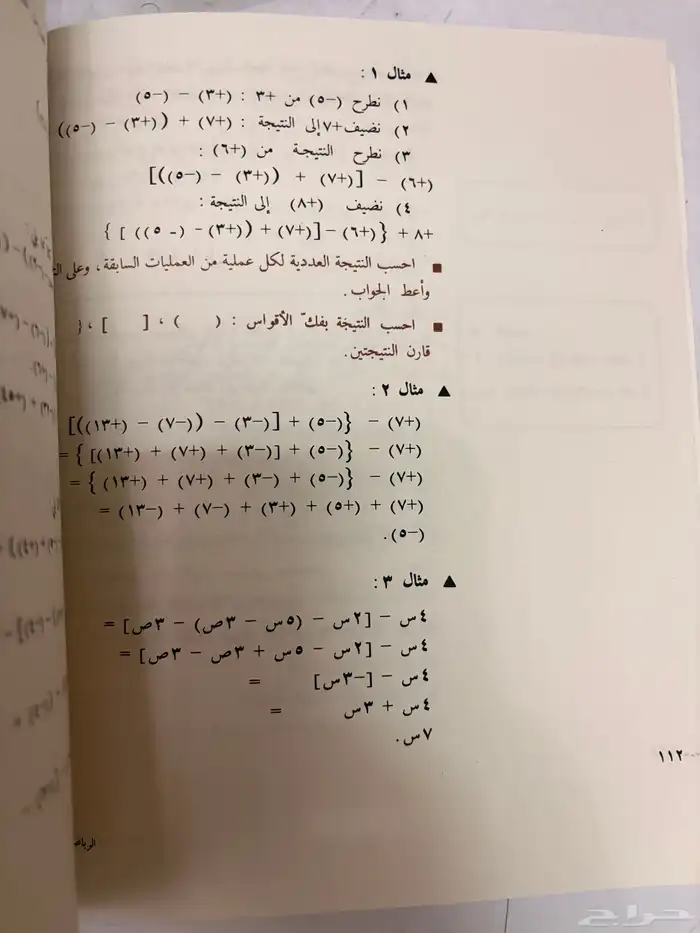 ▲ مثال ١ :
١) نطرح (−٥) من +٣ : (+٣) − (−٥)
٢) نضيف +٧ إلى النتيجة : (+٧) + ((+٣) − (−٥))
٣) نطرح النتيجة من (+٦) :
(+٦) − [(+٧) + ((+٣) − (−٥))]
٤) نضيف (+٨) إلى النتيجة :
+٨ + {(+٦) − [(+٧) + ((+٣) − (− ٥)) ] }
■ احسب النتيجة العددية لكل عملية من العمليات السابقة ، وعلى
وأعط الجواب .
■ احسب النتيجة بفكّ الأقواس : ( ) ، [ ] ، {
قارن النتيجتين .
▲ مثال ٢ :
(+٧) − {(−٥) + [(−٣) − ((−٧) − (+١٣))]
(+٧) − {(−٥) + [(−٣) + (+٧) + (+١٣)] } =
(+٧) − {(−٥) + (−٣) + (+٧) + (+١٣) } =
(+٧) + (+٥) + (+٣) + (−٧) + (−١٣) =
(−٥) .
▲ مثال ٣ :
٤س − [٢س − (٥س − ٣ص) − ٣ص] =
٤س − [٢س − ٥س + ٣ص − ٣ص] =
٤س − [−٣س] =
٤س + ٣س =
٧س .
١١٢
حراج